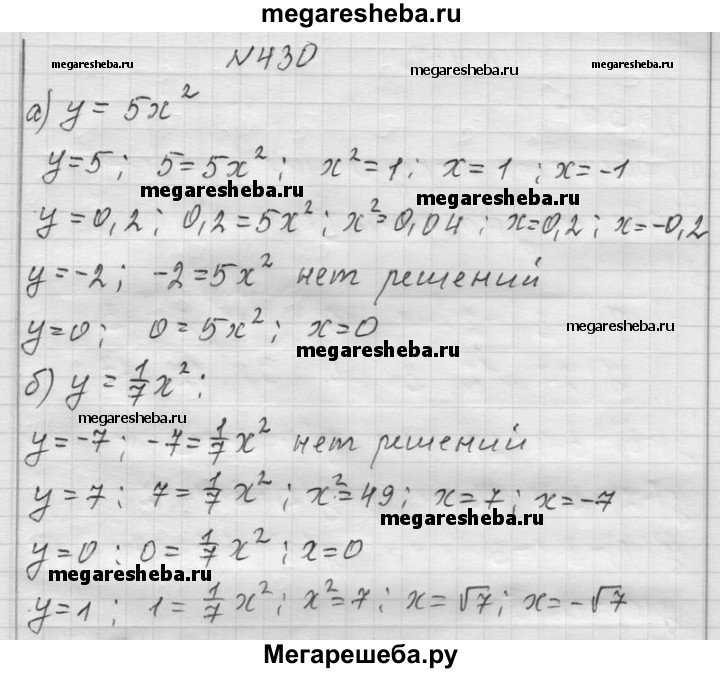 megaresheba.ru
№430
megaresheba.ru
megaresheba.ru
а) y = 5x²
y=5; 5=5x²; x²=1; x=1; x=-1
megaresheba.ru
megaresheba.ru
y=0,2; 0,2=5x²; x²=0,04; x=0,2; x=-0,2
y=-2; -2=5x² нет решений
y=0; 0=5x²; x=0
megaresheba.ru
megaresheba.ru
б) y = 1/7 x²;
megaresheba.ru
y=-7; -7=1/7 x² нет решений
y=7; 7=1/7 x²; x²=49; x=7; x=-7
megaresheba.ru
y=0; 0=1/7 x²; x=0
megaresheba.ru
y=1; 1=1/7 x²; x²=7; x=√7; x=-√7
Мегарешеба.ру